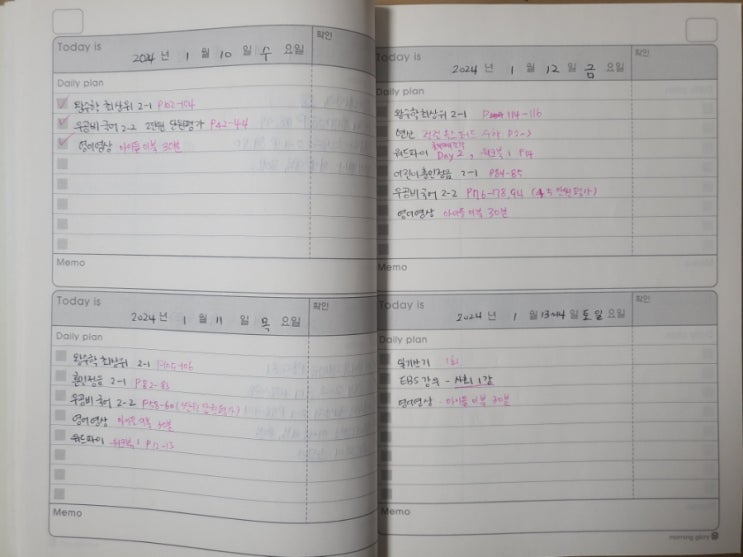 Today is
2024 년 1 월 10 일 수 요일
확인
Daily plan
왕수학 최상위 2-1 P102-104
우공비 국어 2-2 2단원 단원평가 P42-44
영어영상 아이들이북 30분
Memo
Today is
2024 년 1 월 11 일 목 요일
확인
Daily plan
왕수학 최상위 2-1 P105-106
훈민정음 2-1 P82-83
우공비 국어 2-2 P58-60
영어영상 아이들이북 30분
워드파이 워크북 1 P12-13
Memo
Today is
2024 년 1 월 12 일 금 요일
확인
Daily plan
왕수학 최상위 2-1 114-116
연산 P2-3
워드파이 Day 2, 워크북 1 P14
어린이훈민정음 2-1 P84-85
우공비국어 2-2 P76-78, 94
영어영상 아이들이북 30분
Memo
Today is
2024 년 1 월 13~14 일 토일 요일
확인
Daily plan
일기쓰기 1회
EBS 강의 - 사회 1강
영어영상 - 아이들이북 30분
Memo
morning glory